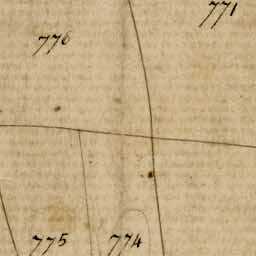 771
776
775
774